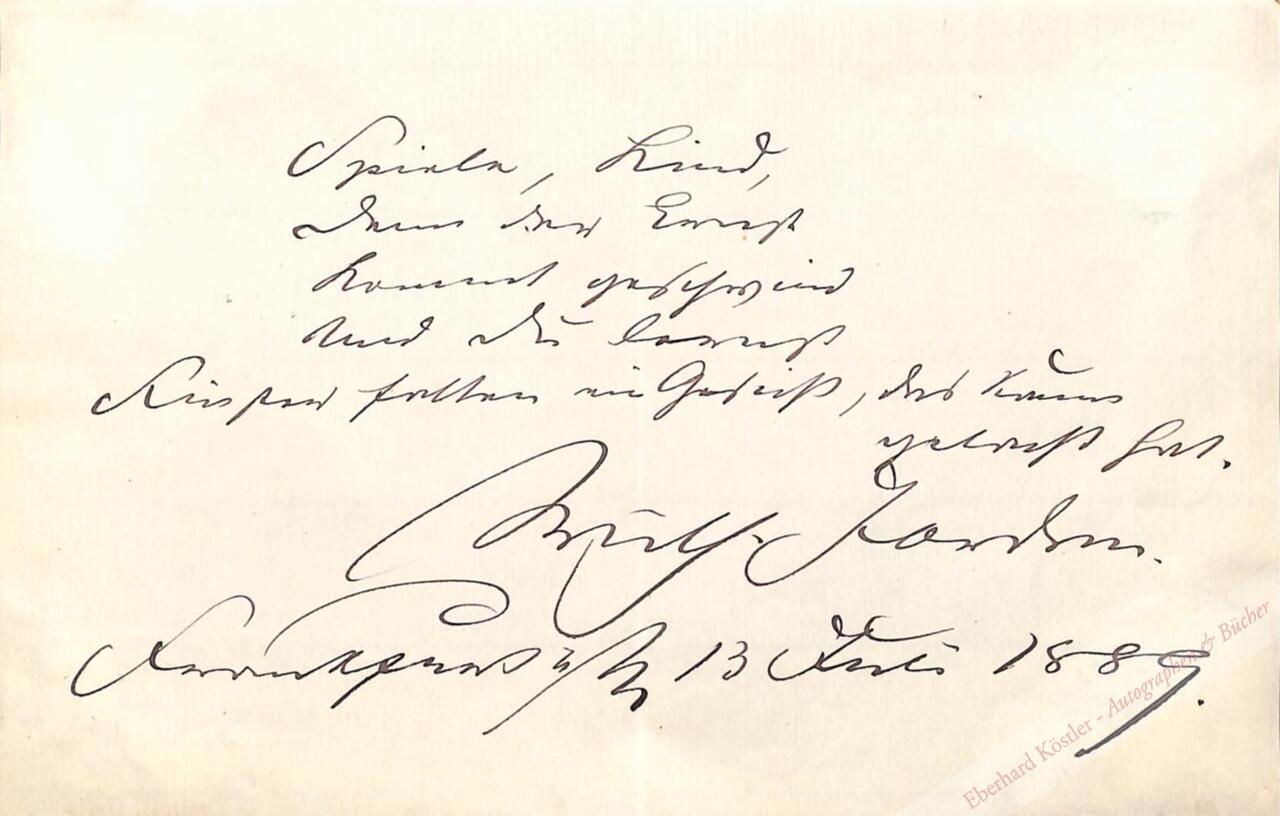 Spiele, Kind,
Denn der Ernst
Kommt geschwind
Und Du lernst
Finster falten ein Gesicht, das kaum
gelacht hat.
Wilh. Jordan.
Frankfurt a/M 13 Juli 1889.
Eberhard Köstler - Autographen & Bücher